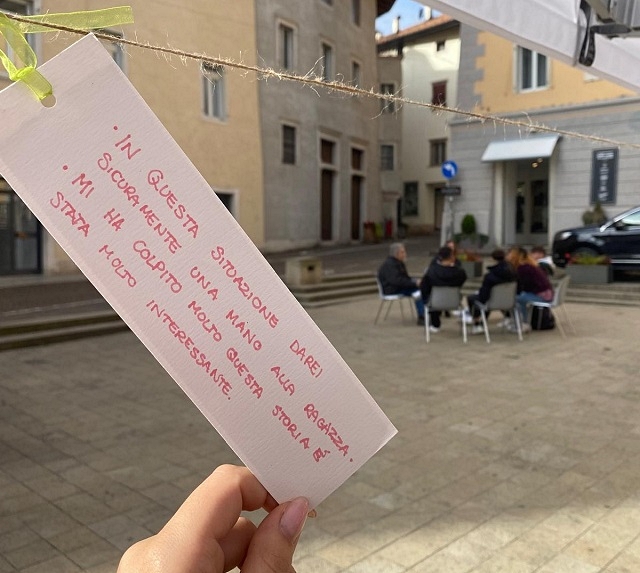 • IN QUESTA SITUAZIONE DAREI
SICURAMENTE UNA MANO ALLA RAGAZZA.
• MI HA COLPITO MOLTO QUESTA STORIA É
STATA MOLTO INTERESSANTE.